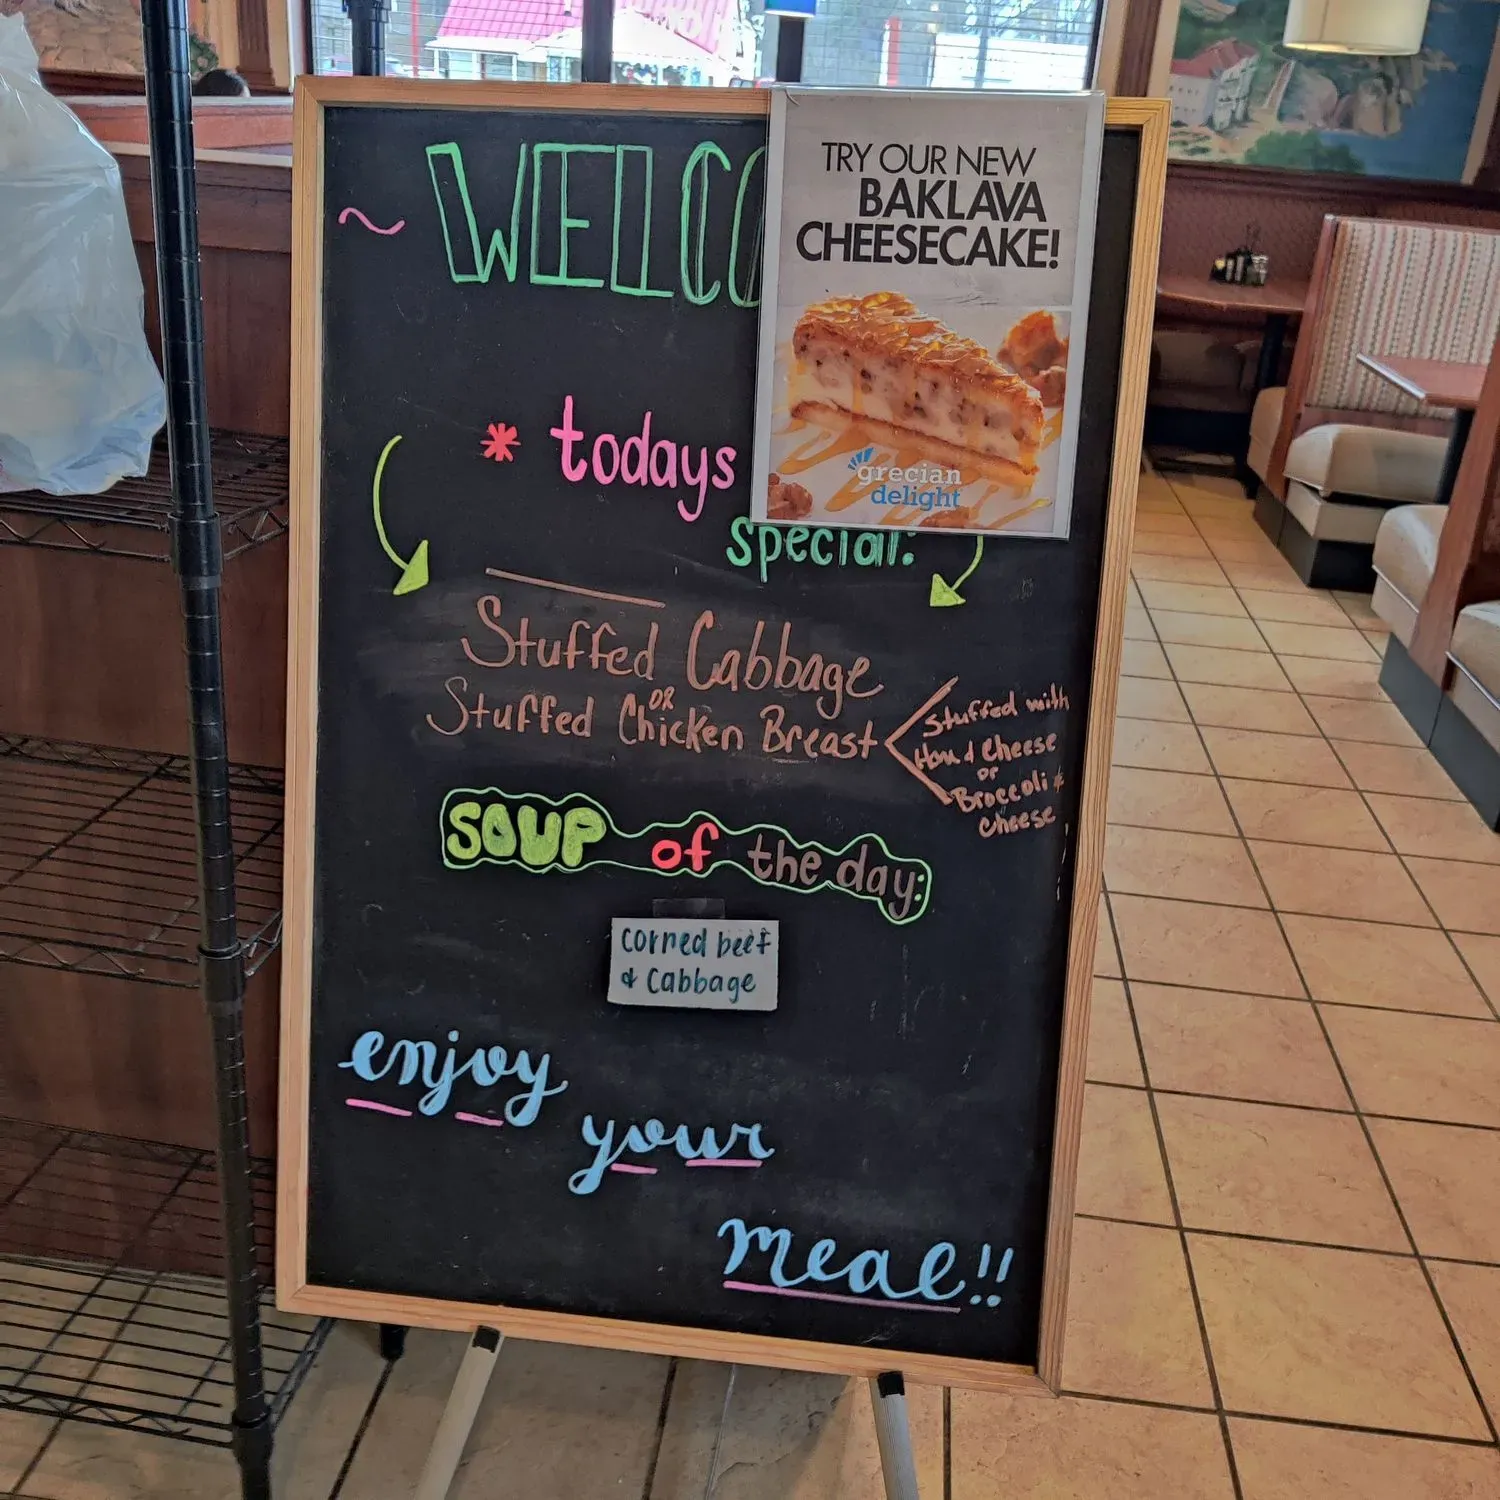 WELCO
TRY OUR NEW
BAKLAVA
CHEESECAKE!
grecian
delight
~
* todays
special:
Stuffed Cabbage
OR
Stuffed Chicken Breast
Stuffed with
Ham & Cheese
or
Broccoli &
Cheese
SOUP of the day:
Corned beef
& Cabbage
enjoy
your
meal!!